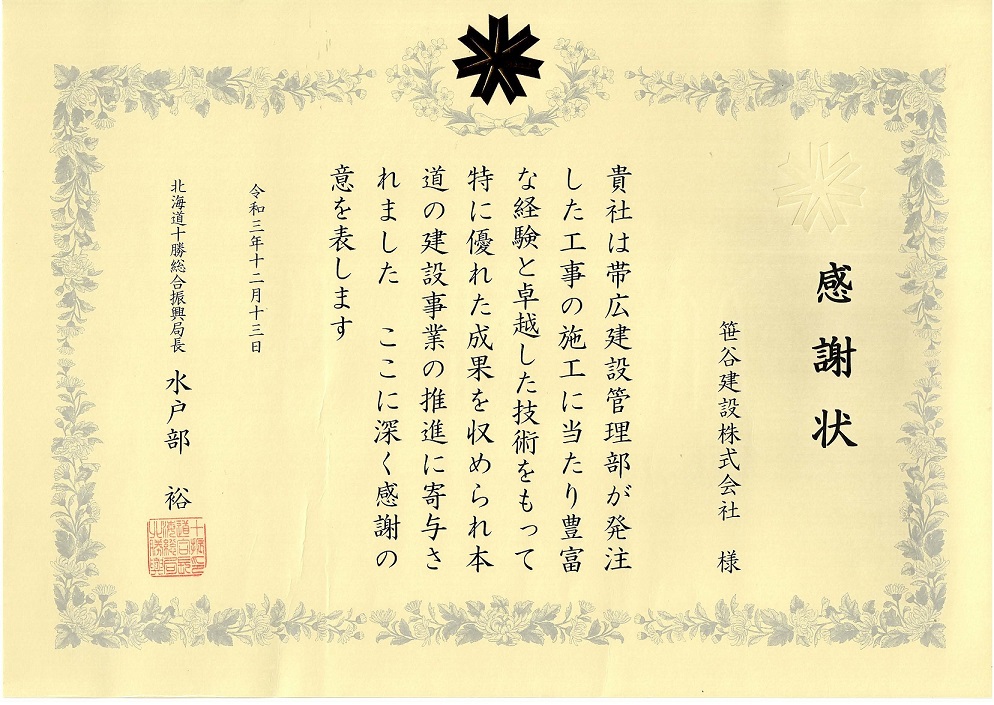 感謝状
笹谷建設株式会社 様
貴社は帯広建設管理部が発注
した工事の施工に当たり豊富
な経験と卓越した技術をもって
特に優れた成果を収められ本
道の建設事業の推進に寄与さ
れました ここに深く感謝の
意を表します
令和三年十二月十三日
北海道十勝総合振興局長 水戸部 裕